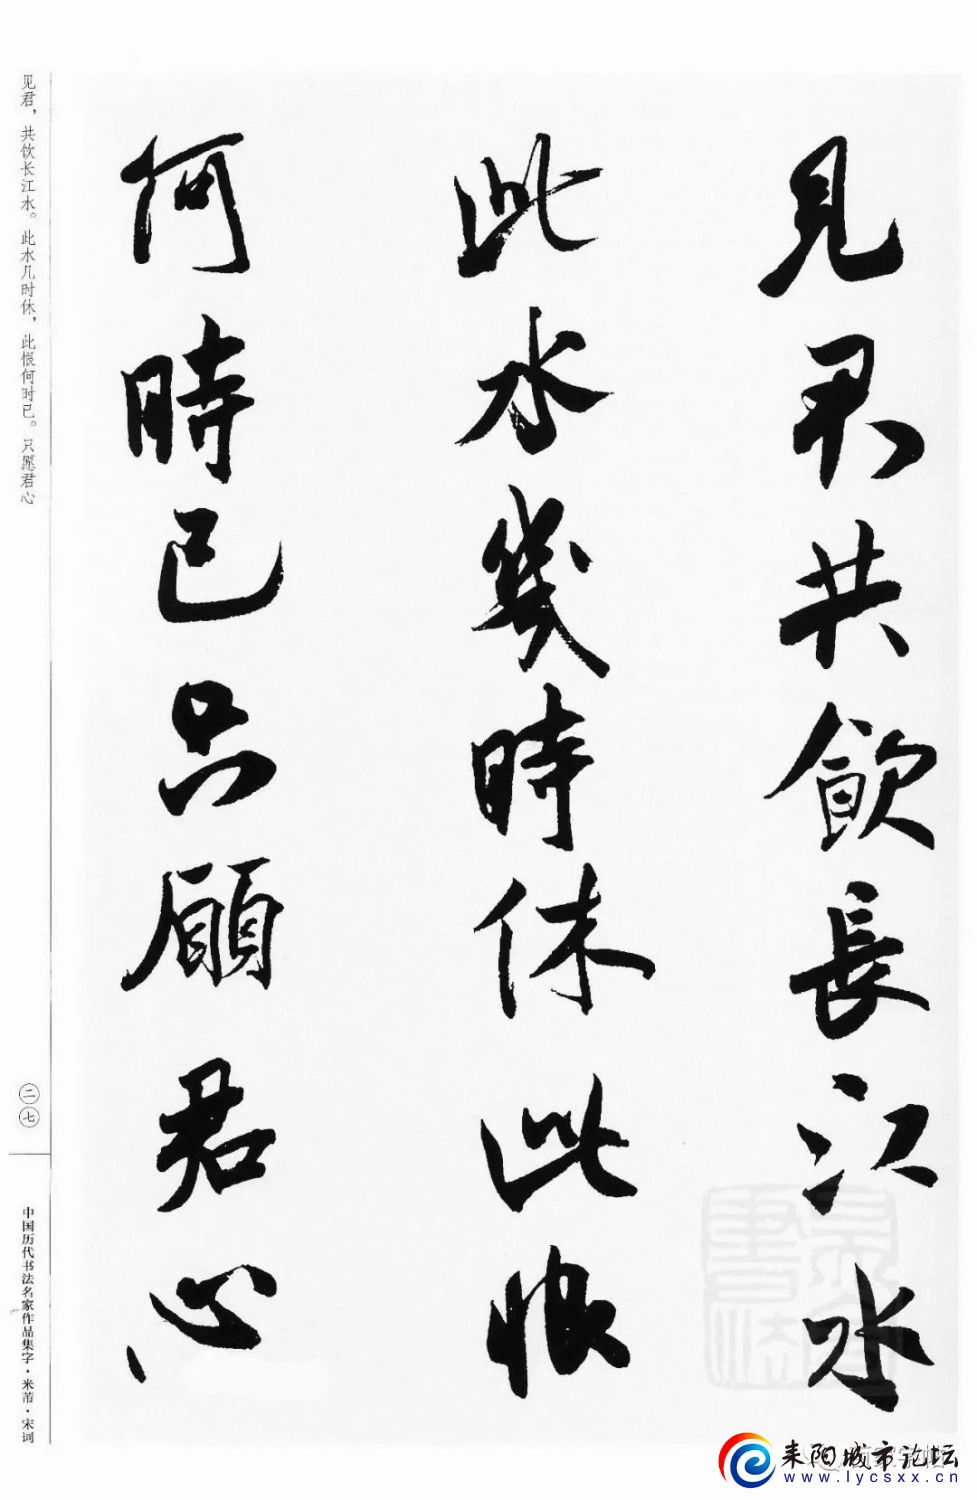 見君共飲長江水
此水幾時休此恨
何時已只願君心
见君，共饮长江水。此水几时休，此恨何时已。只愿君心
二七
中国历代书法名家作品集字·米芾·宋词
耒阳城市论坛
www.lycsxx.cn